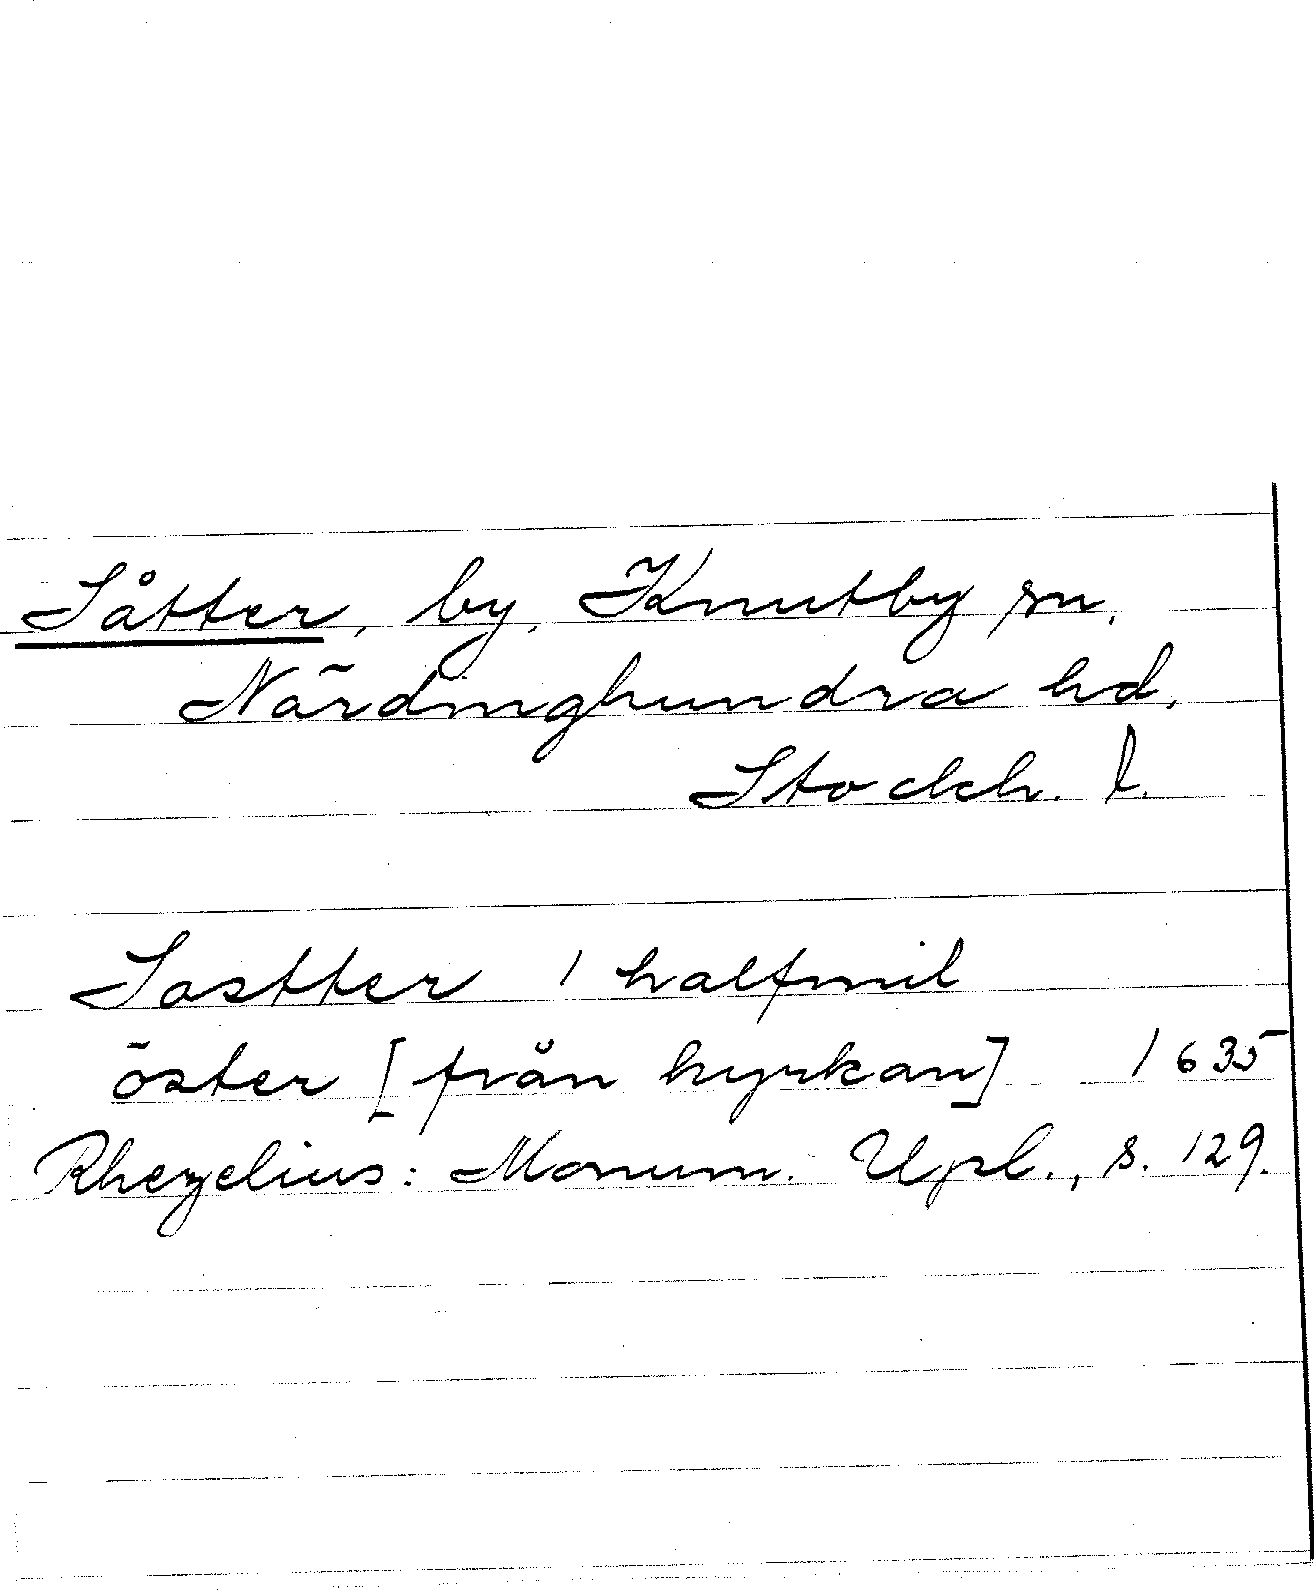 Såtter, by, Knutby sn,
Närdinghundra hd,
Stockh. l.
Sostter 1 halfmil
öster [från kyrkan] 1635
Rhezelius: Monum. Upl., s. 129.